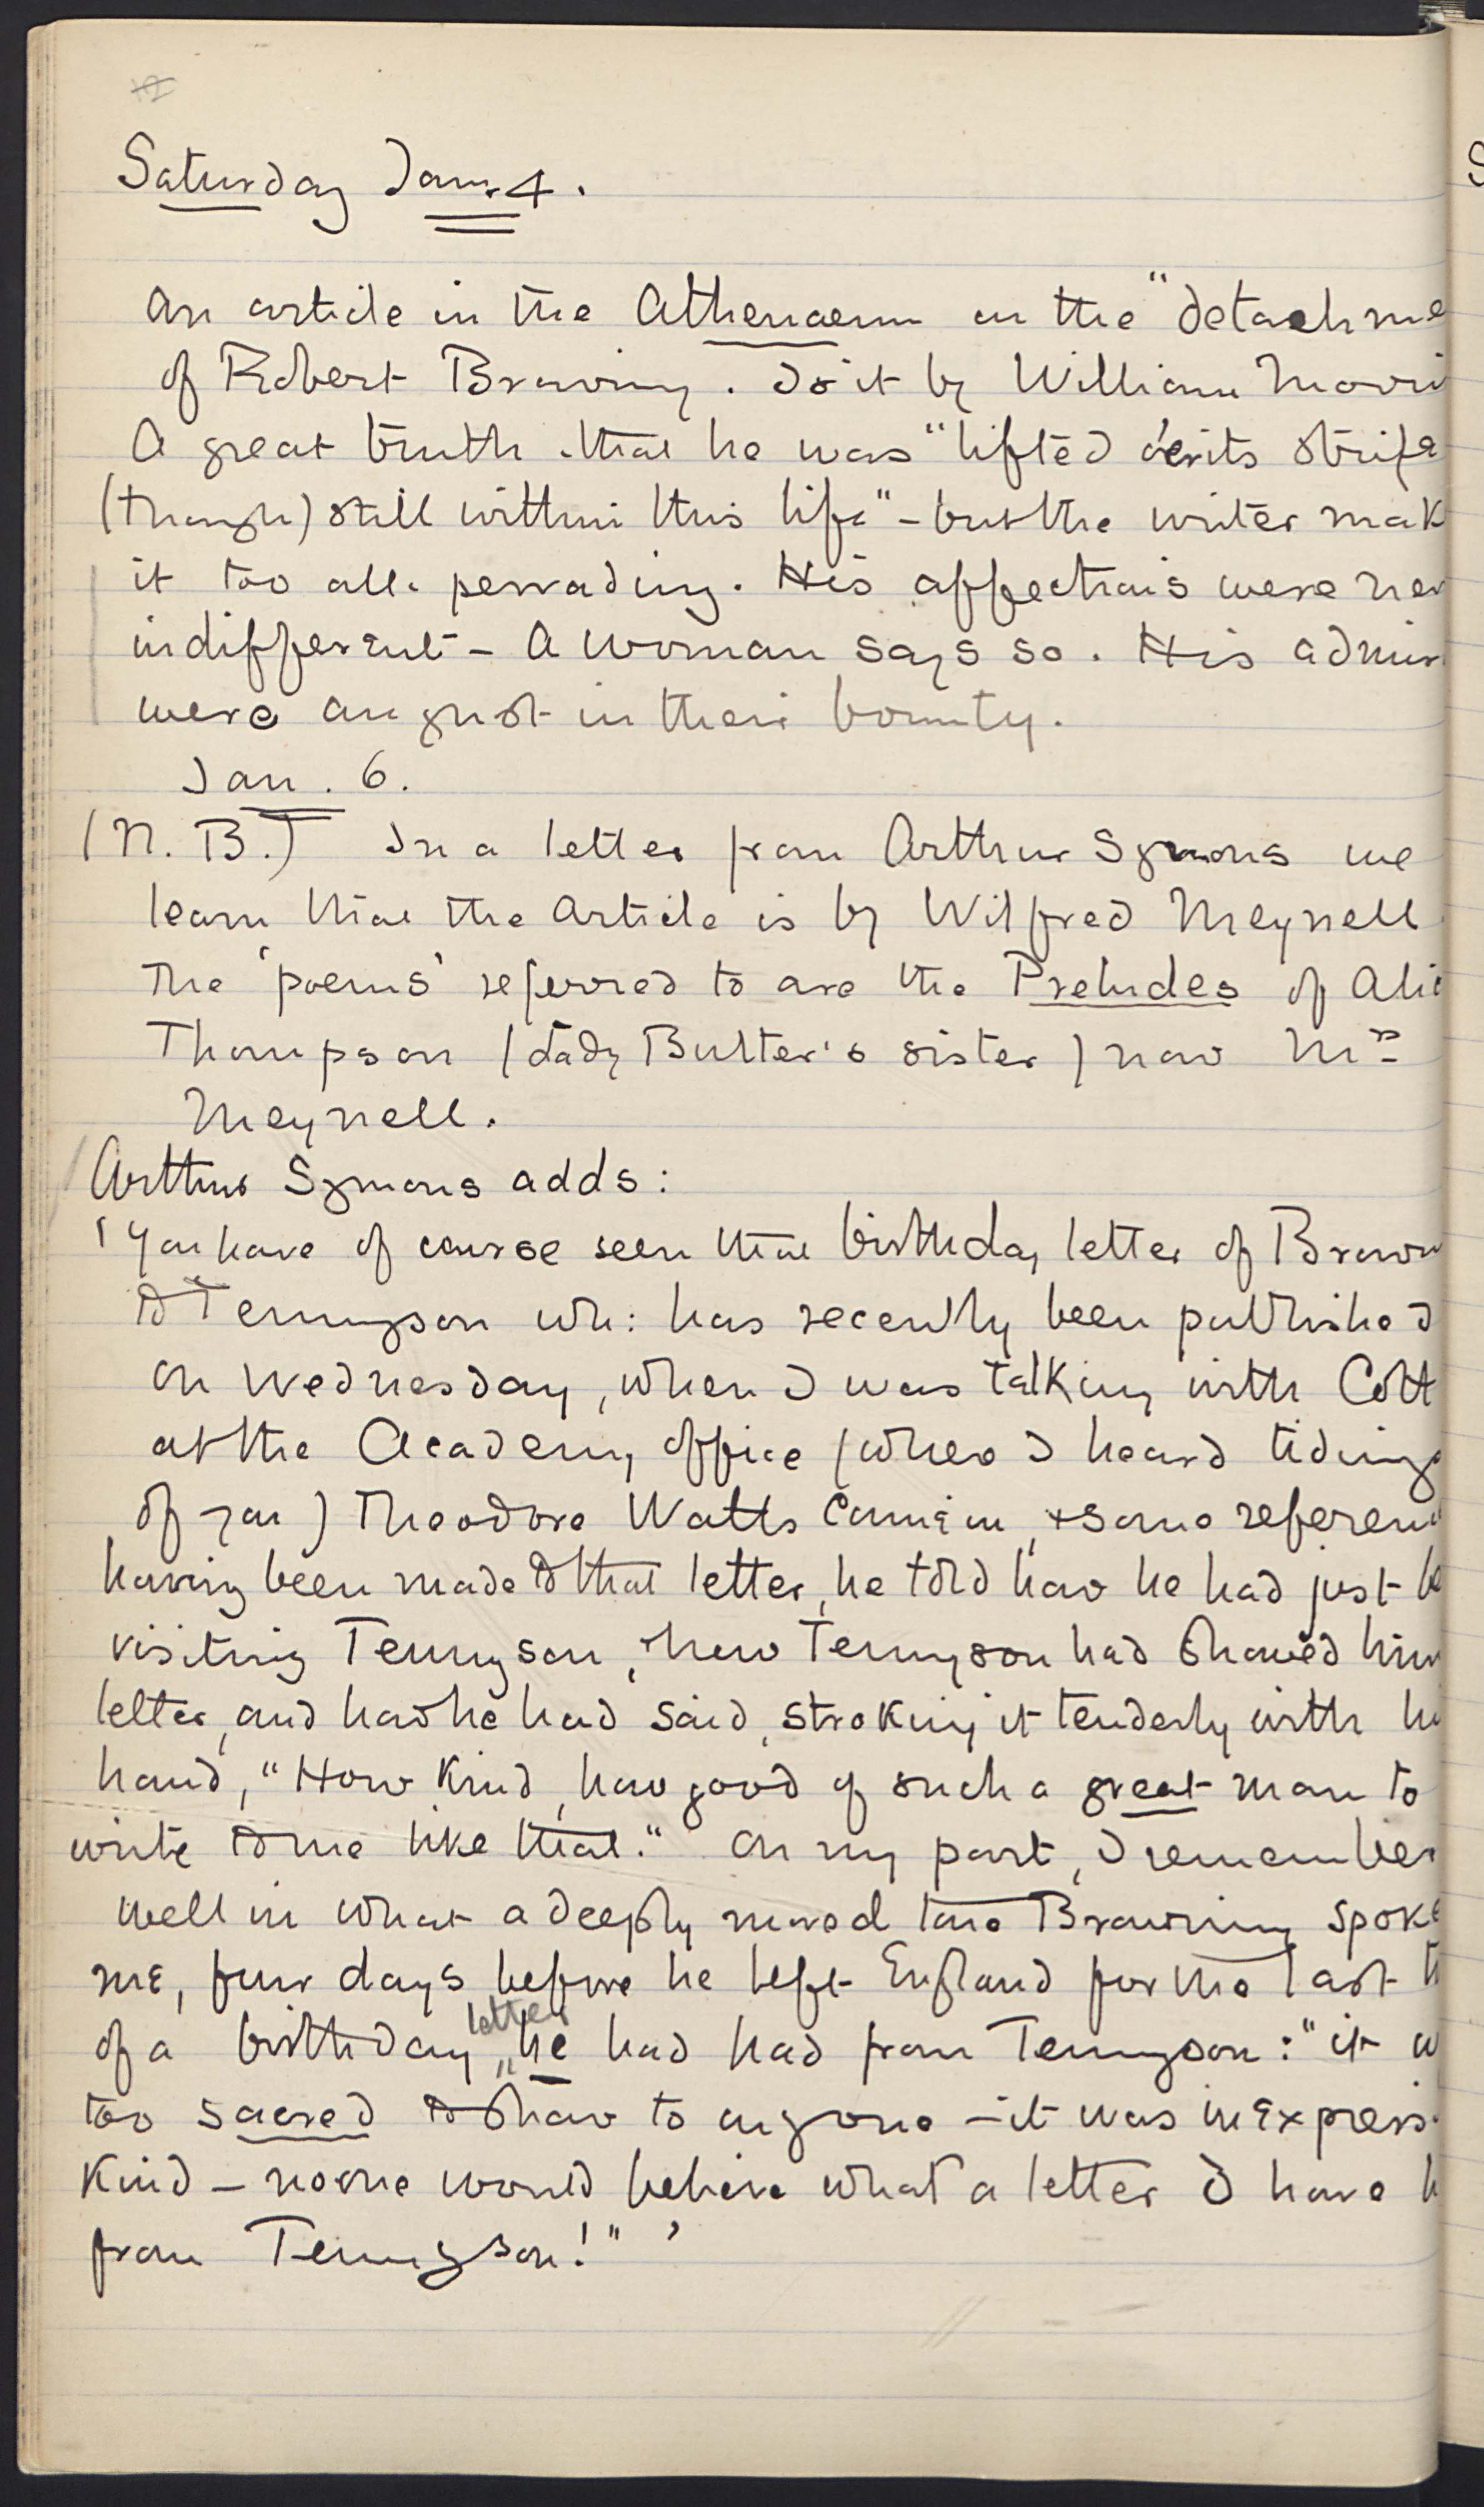 Saturday Jan. 4.
An article in the Athenaeum on the "detachme
of Robert Browning. Is it by William Morri
A great truth that he was "lifted o'er its strife
(though) still within this life" – but the writer mak
it too all-pervading. His affections were nev
indifferent – A woman says so. His admir
were august in their bounty.
Jan. 6.
(N.B.) In a letter from Arthur Symons we
learn that the Article is by Wilfred Meynell
The 'poems' referred to are the Preludes of Alic
Thompson (Lady Butler's sister) now Mrs
Meynell.
Arthur Symons adds:
'You have of course seen that birthday letter of Brown
to Tennyson wh: has recently been published
On Wednesday, when I was talking with Cott
at the Academy office (where I heard tidings
of you) Theodore Watts came in, & some referenc
having been made to that letter, he told how he had just b
visiting Tennyson, how Tennyson had showed him
letter, and how he had said, stroking it tenderly with hi
hand, "How kind, how good of such a great man to
write to me like that." On my part, I remember
well in what a deeply moved tone Browning spoke
me, four days before he left England for the last t
of a birthday letter he had had from Tennyson: "it w
too sacred to show to anyone – it was inexpress
kind – no one would believe what a letter I have h
from Tennyson!" '